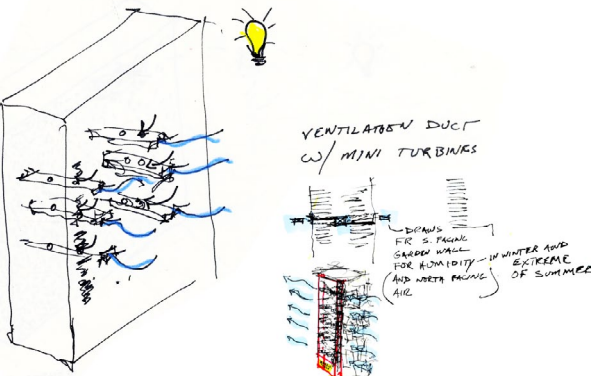 VENTILATION DUCT
W/ MINI TURBINES
DRAWS
FR S. FACING
GARDEN WALL
FOR HUMIDITY
AND NORTH FACING
AIR
IN WINTER AND
EXTREME
OF SUMMER